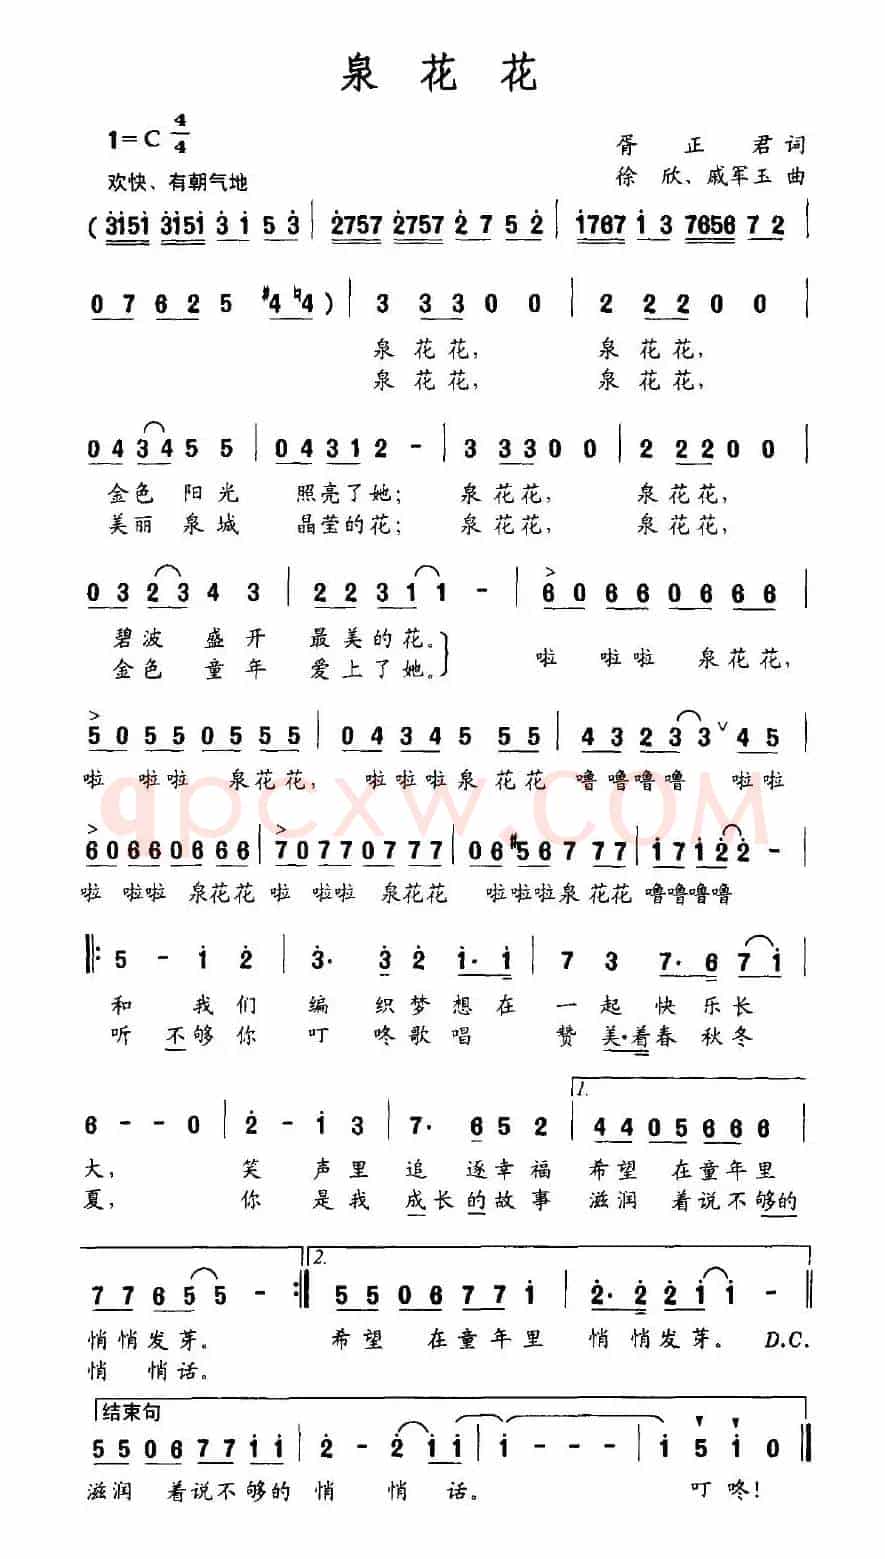 泉 花 花
1=C 4/4
胥 正 君 词
欢快、有朝气地
徐 欣、戚军玉 曲
( 3151 3151 3 1 5 3 | 2757 2757 2 7 5 2 | 1767 1 3 7656 7 2 |
0 7 6 2 5 #4 ♮4 ) | 3 3 3 0 0 | 2 2 2 0 0 |
泉 花 花, 泉 花 花,
泉 花 花, 泉 花 花,
0 4 3 4 5 5 | 0 4 3 1 2 - | 3 3 3 0 0 | 2 2 2 0 0 |
金色 阳光 照亮了她; 泉花花, 泉花花,
美丽 泉城 晶莹的花; 泉花花, 泉花花,
0 3 2 3 4 3 | 2 2 3 1 1 - | 6 0 6 6 0 6 6 6 |
碧波 盛开 最美的花。
金色 童年 爱上了她。
啦 啦啦 泉花花,
5 0 5 5 0 5 5 5 | 0 4 3 4 5 5 5 | 4 3 2 3 3 ∨ 4 5 |
啦 啦啦 泉花花, 啦啦啦泉 花花 噜噜噜噜 啦啦
qpcxw.COM
6 0 6 6 0 6 6 6 | 7 0 7 7 0 7 7 7 | 0 6 #5 6 7 7 7 | 1 7 1 2 2 - |
啦 啦啦 泉花花 啦 啦啦 泉花花 啦啦啦泉 花花 噜噜噜噜
‖: 5 - 1 2 | 3· 3 2 1· 1 | 7 3 7· 6 7 1 |
和 我们 编 织梦想在 一起 快乐长
听 不够你 叮 咚歌唱 赞 美·着春秋冬
1.
6 - - 0 | 2 - 1 3 | 7· 6 5 2 | 4 4 0 5 6 6 6 |
大, 笑 声里 追 逐幸福 希望 在童年里
夏, 你 是我 成长的故事 滋润 着说不够的
2.
7 7 6 5 5 - :‖ 5 5 0 6 7 7 1 | 2· 2 2 1 1 - ‖
悄悄发芽。 希望 在童年里 悄 悄发芽。 D.C.
悄 悄话。
结束句
5 5 0 6 7 7 1 1 | 2 - 2 1 1 | 1 - - - | 1 5 1 0 ‖
滋润 着说不够的 悄 悄 话。 叮 咚!